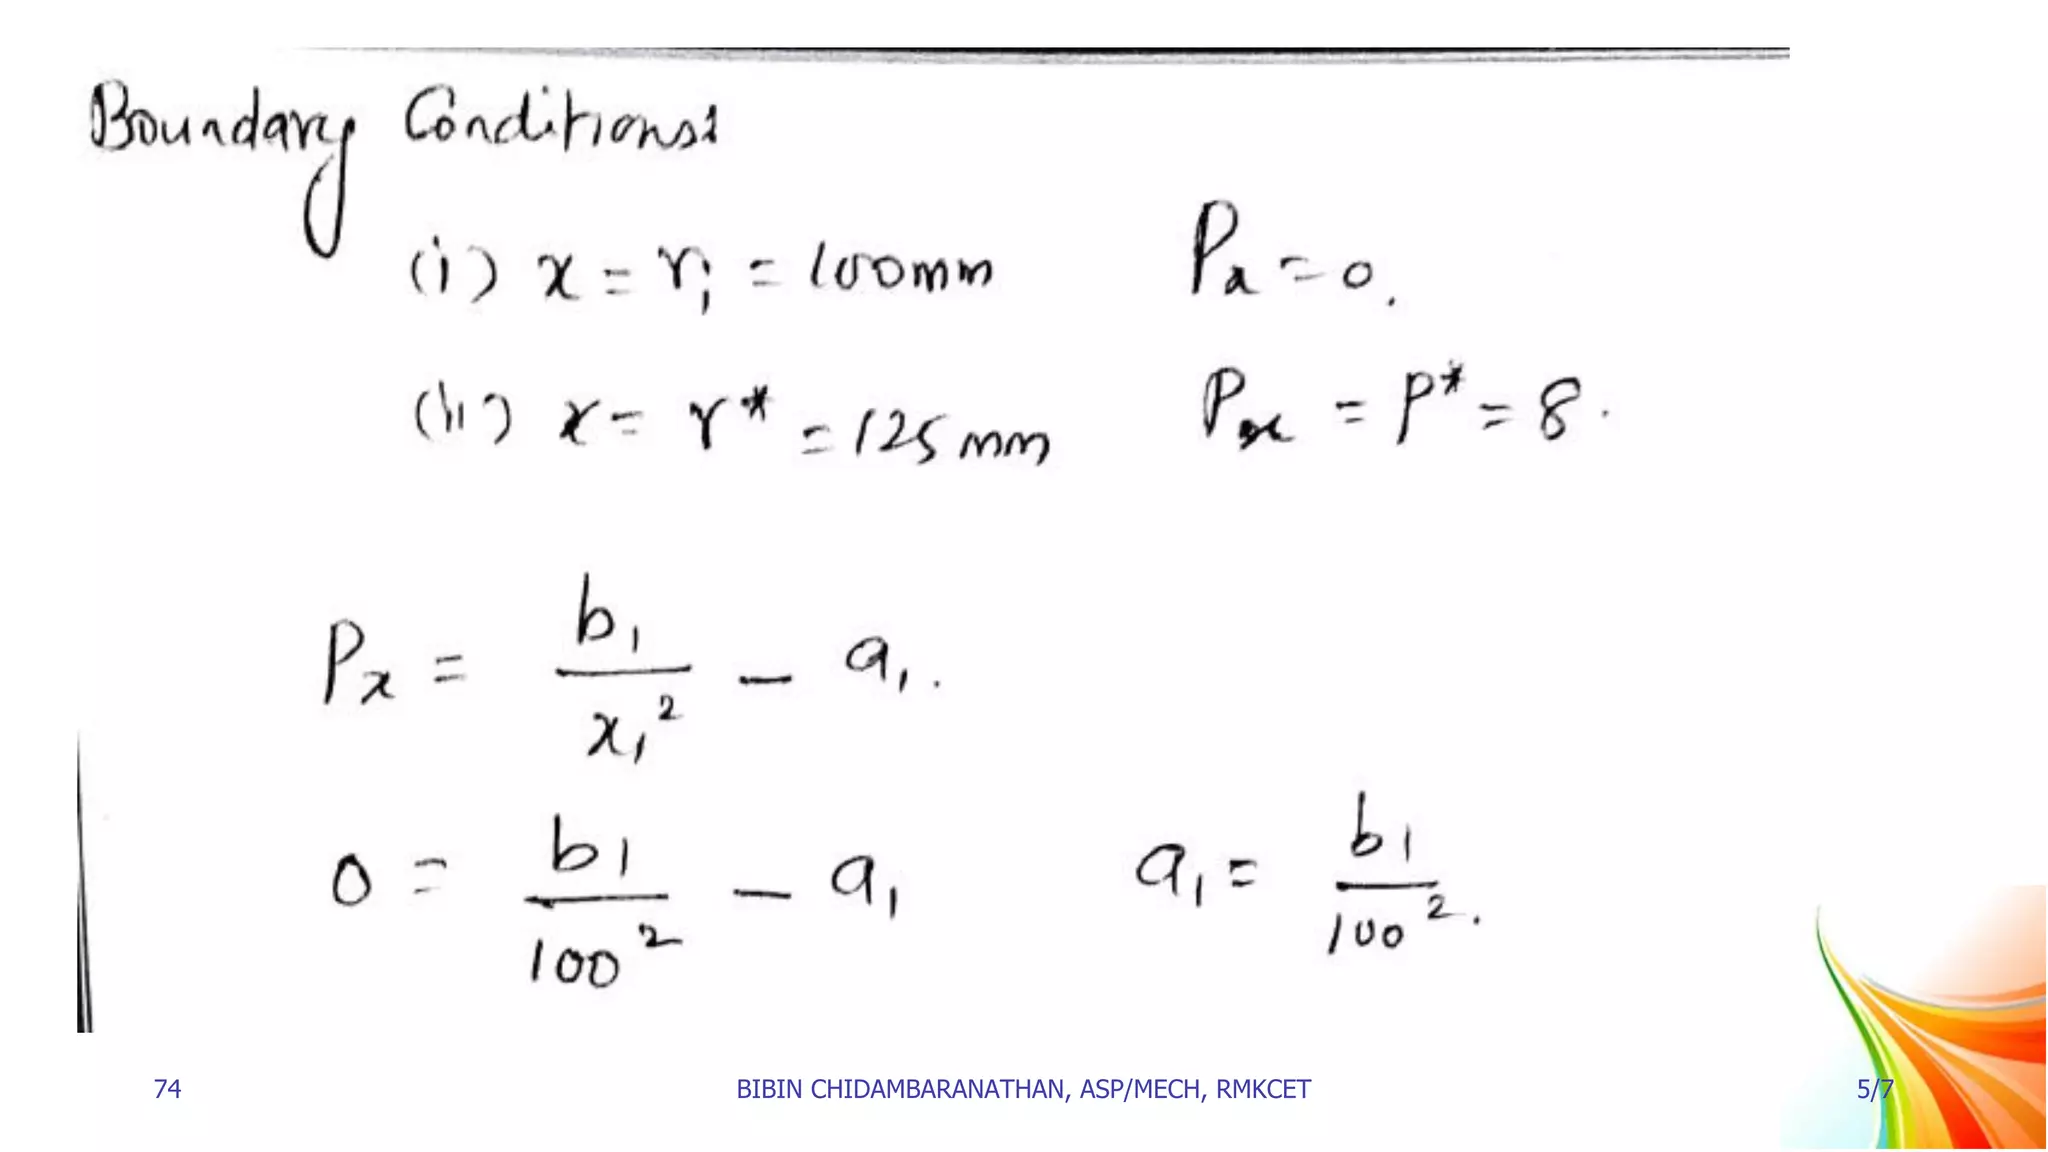 Boundary Conditions:
(i) x = r₁ = 100mm    Px = 0.
(ii) x = r* = 125mm    Px = P* = 8.
Px = b₁/x₁² - a₁.
0 = b₁/100² - a₁    a₁ = b₁/100².
74    BIBIN CHIDAMBARANATHAN, ASP/MECH, RMKCET    5/7